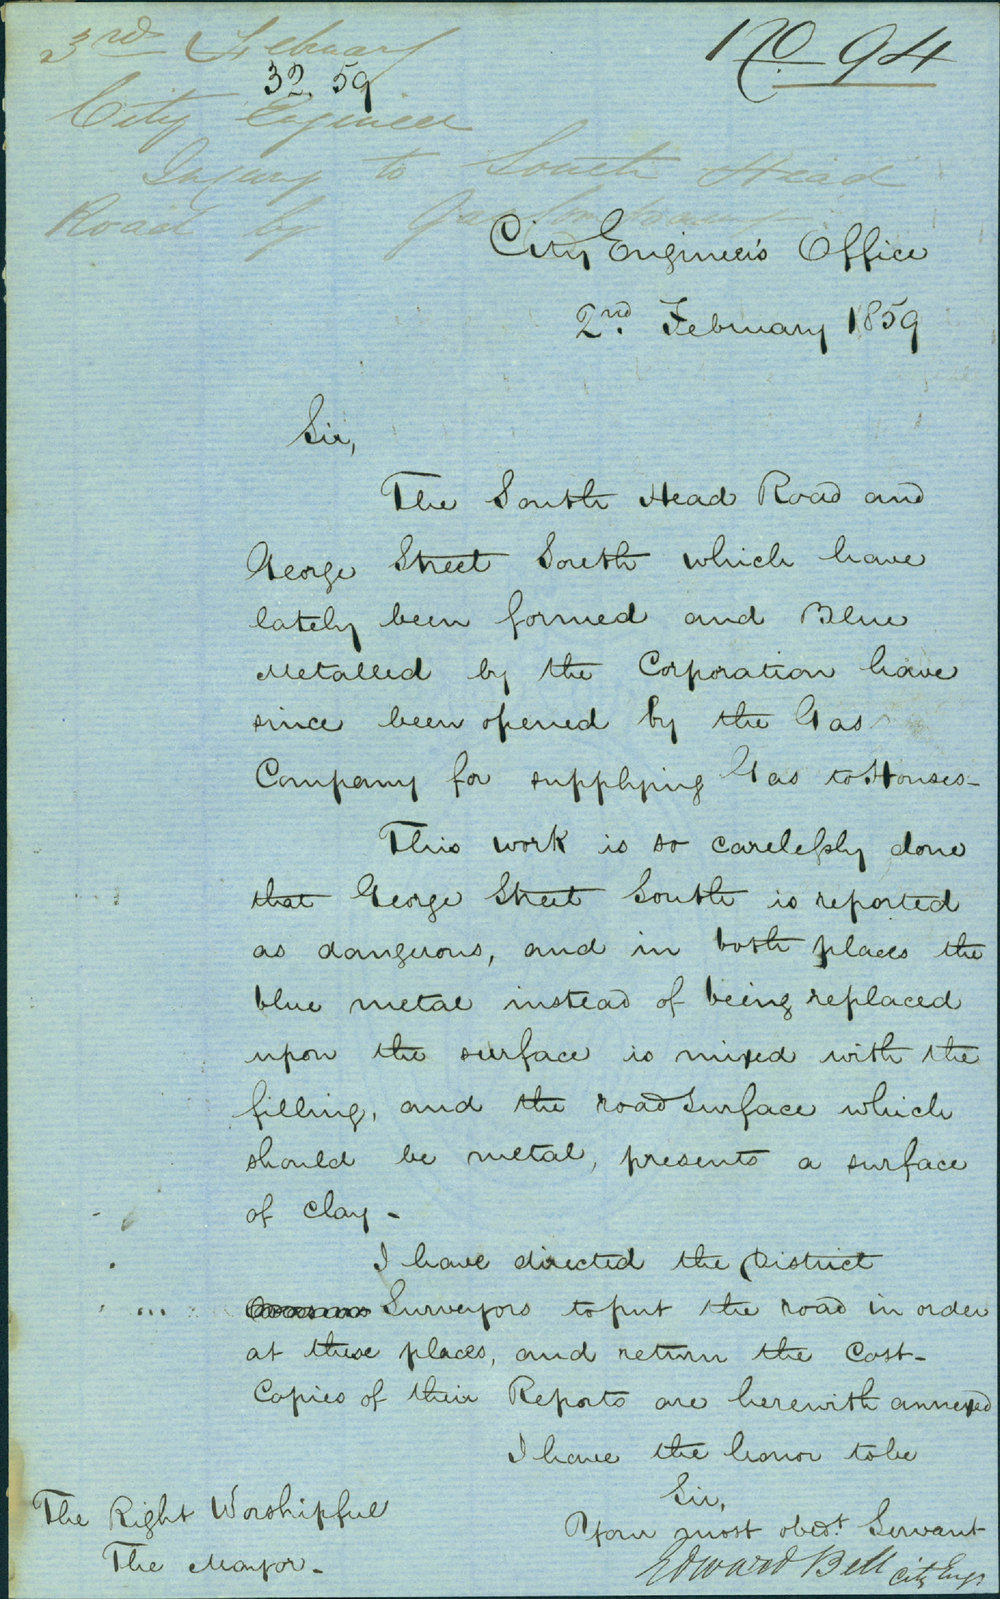 3rd February
No 94
32. 59
City Engineer
Injury to South Head
Road by Gas Company
City Engineer's Office
2nd. February 1859
Sir,
The South Head Road and
George Street South which have
lately been formed and Blue
Metalled by the Corporation have
since been opened by the Gas
Company for supplying Gas to Houses-
This work is so carelessly done
that George Street South is reported
as dangerous, and in both places the
blue metal instead of being replaced
upon the surface is mixed with the
filling, and the road surface which
should be metal, presents a surface
of clay-
I have directed the District
Surveyors to put the road in order
at these places, and return the Cost-
Copies of their Reports are herewith annexed
I have the honor to be
Sir,
Your most obedt. Servant
Edward Bell City Engr
The Right Worshipful
The Mayor-